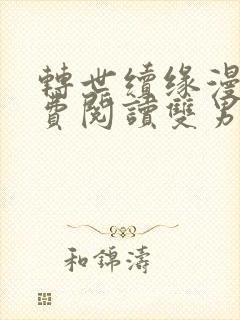 轉世續緣漫
費閱讀雙男
和錦濤